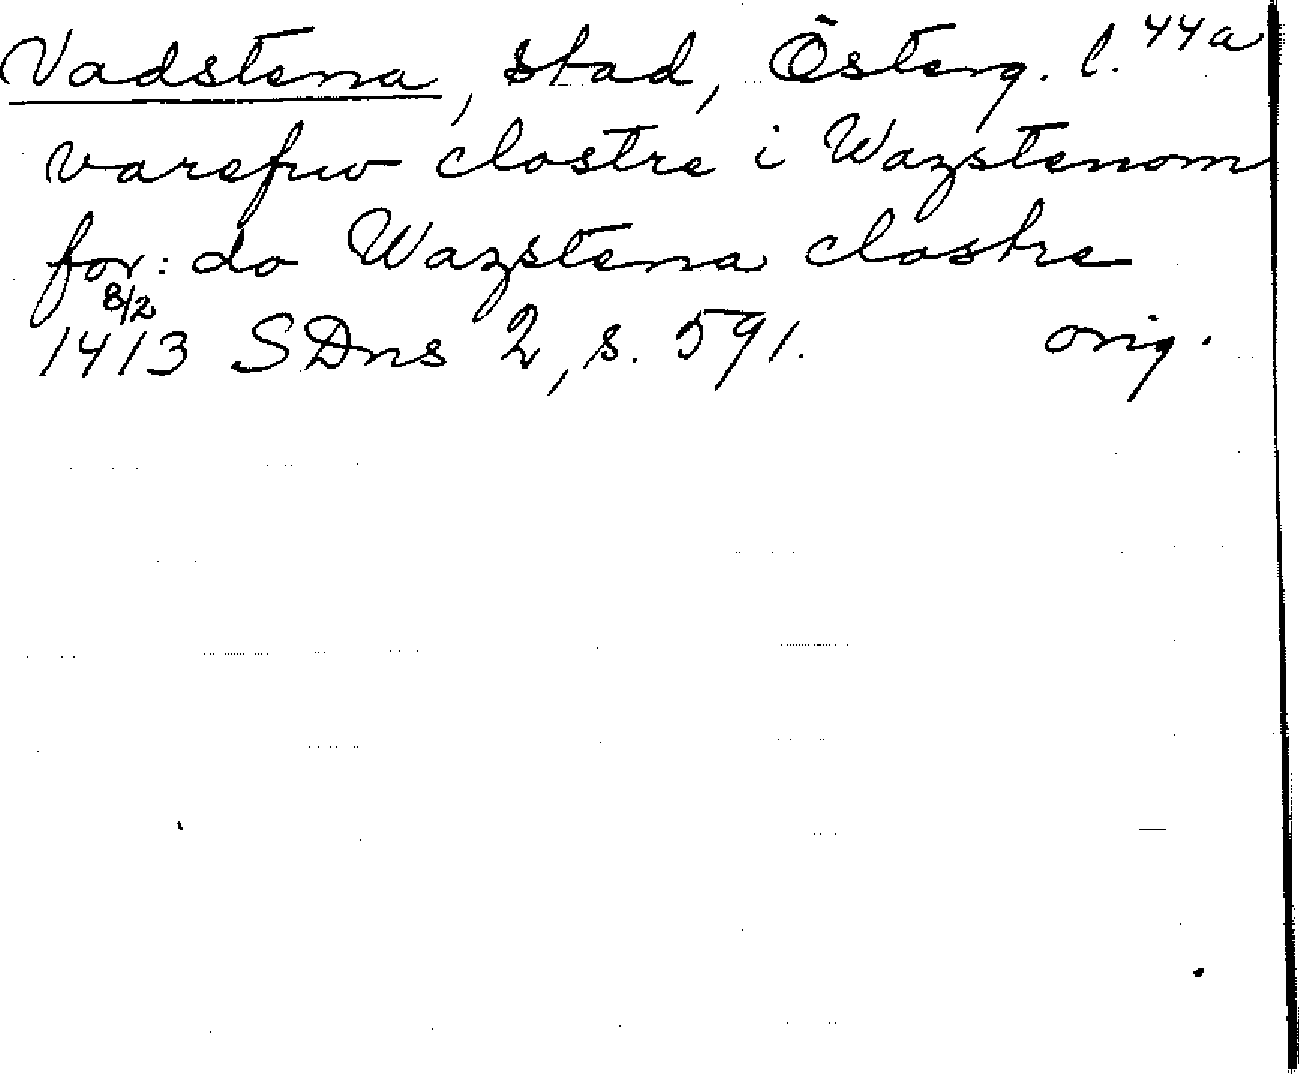 Vadstena, stad, Österg. l. 44a
varefrw clostre i Wazstenom
for: do Wazstena clostre
8/2
1413 SDns 2, s. 591. orig.